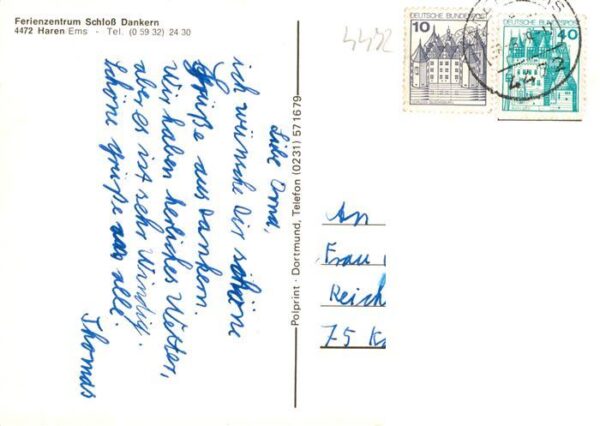 Ferienzentrum Schloß Dankern
4472 Haren Ems - Tel. (0 59 32) 24 30
4472
DEUTSCHE BUNDESPOST
10
DEUTSCHE BUNDESPOST
40
Liebe Oma,
ich wünsche Dir schöne
Grüße aus Dankern.
Wir haben herliches Wetter,
aber es ist sehr Windig.
Schöne grüße aus alle.
Thomas
Polprint · Dortmund, Telefon (0231) 571679
An
Frau
Reich
75 Ka